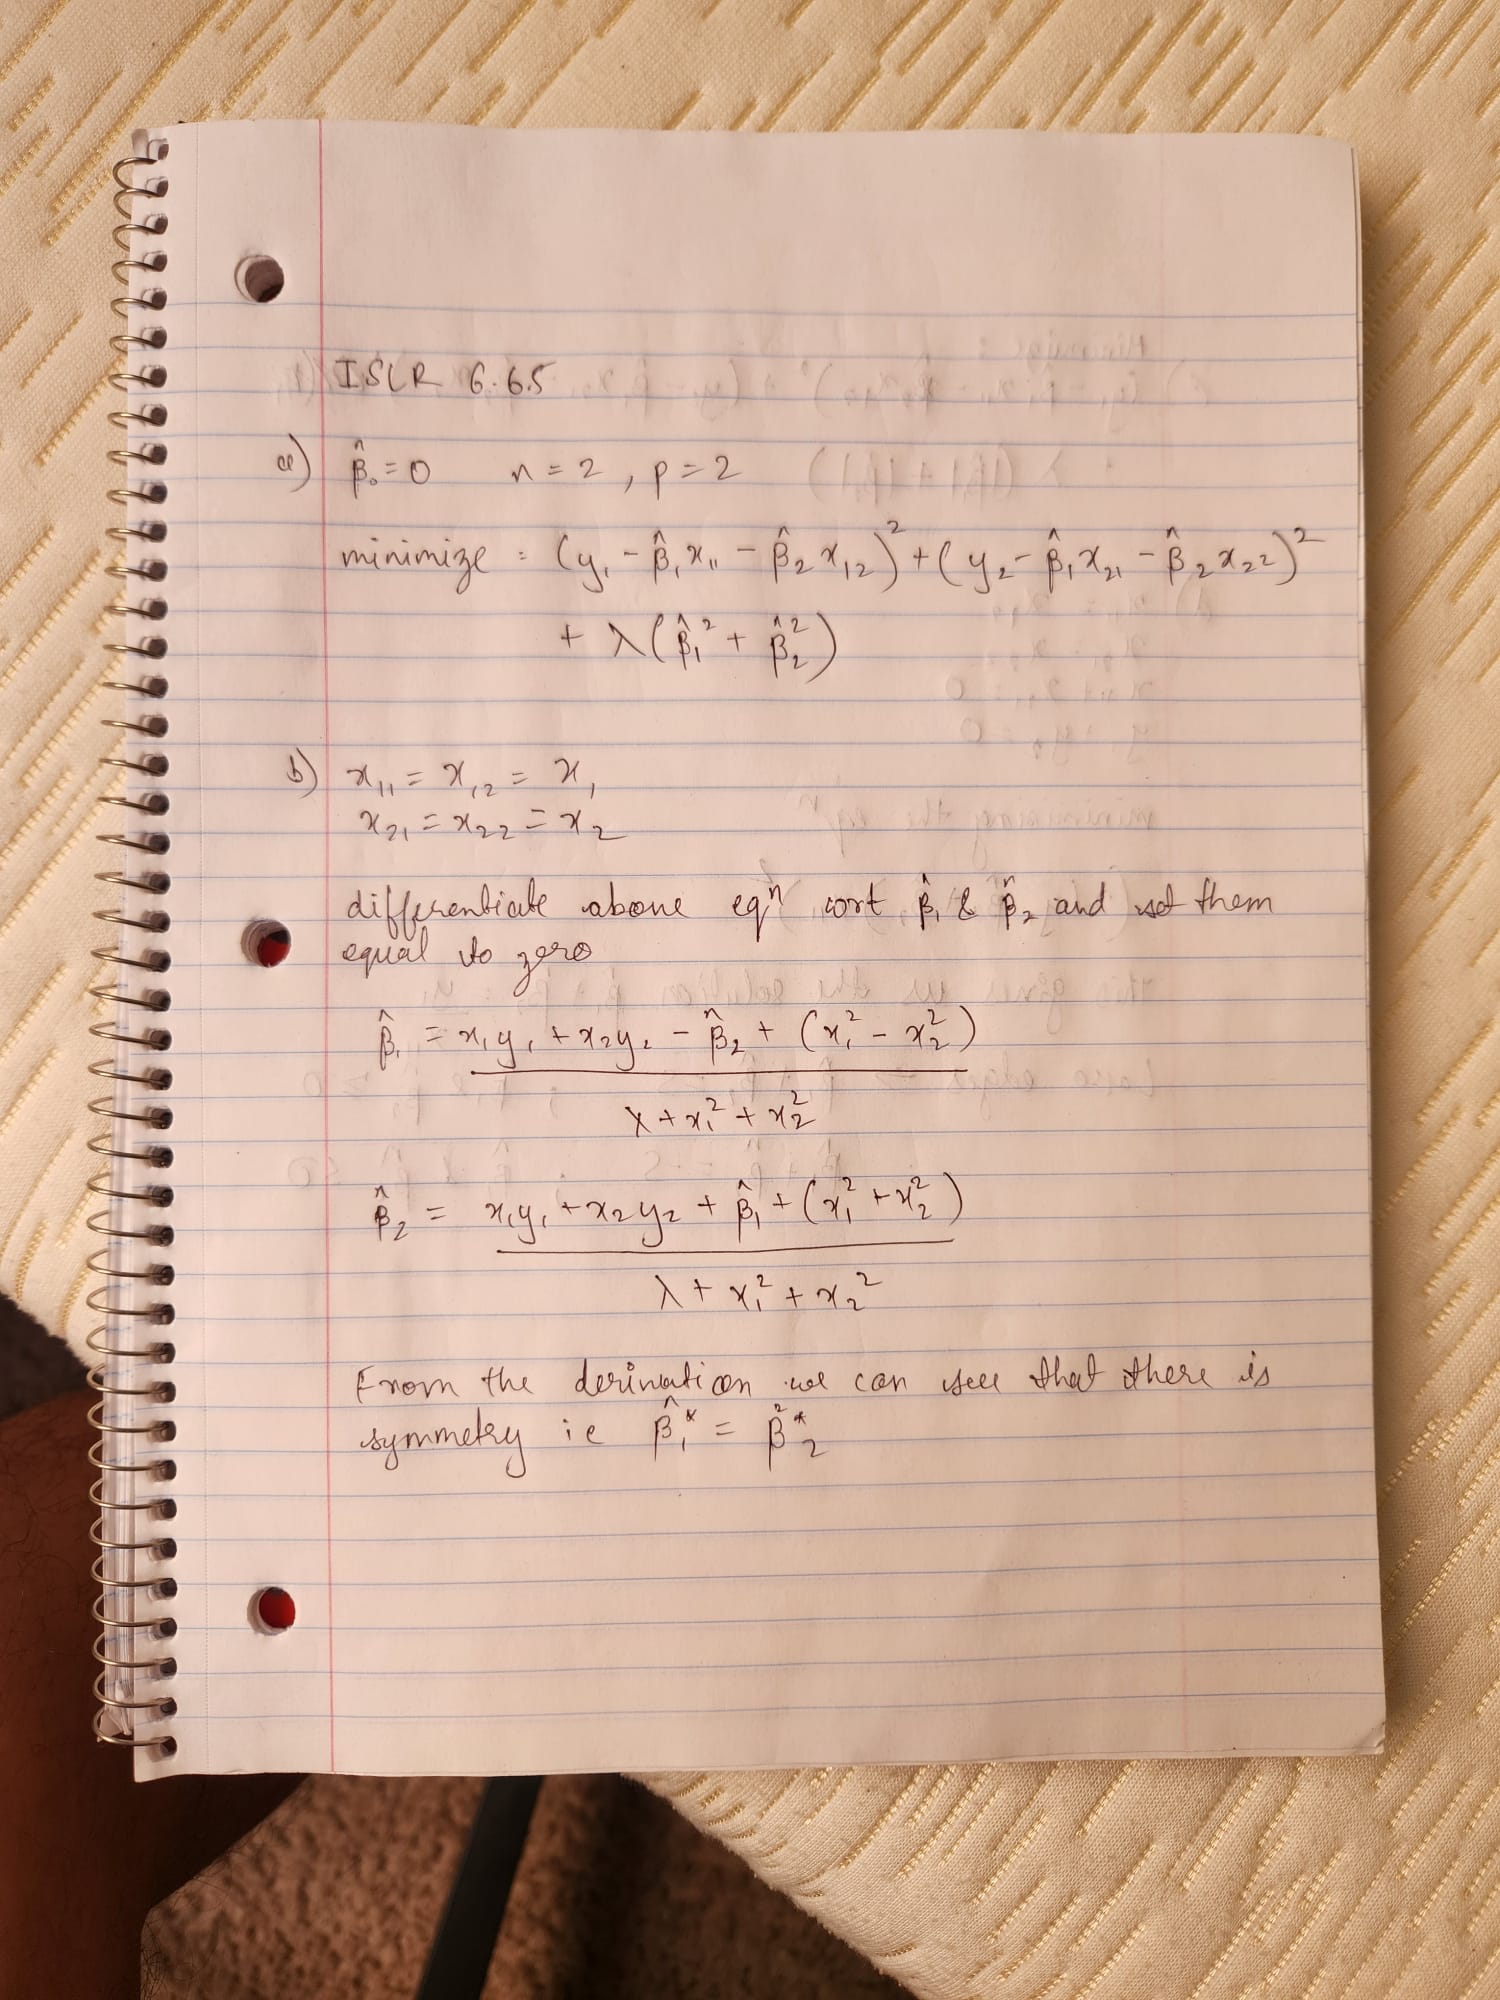 ISLR 6.6.5
a) β̂₀ = 0 n = 2 , p = 2
minimize : (y₁ - β̂₁x₁₁ - β̂₂x₁₂)² + (y₂ - β̂₁x₂₁ - β̂₂x₂₂)²
+ λ(β̂₁² + β̂₂²)
b) x₁₁ = x₁₂ = x₁
x₂₁ = x₂₂ = x₂
differentiate above eqⁿ wrt β̂₁ & β̂₂ and set them
equal to zero
β̂₁ = x₁y₁ + x₂y₂ - β̂₂ + (x₁² - x₂²)
λ + x₁² + x₂²
β̂₂ = x₁y₁ + x₂y₂ + β̂₁ + (x₁² + x₂²)
λ + x₁² + x₂²
From the derivation we can see that there is
symmetry ie β̂₁* = β̂₂*